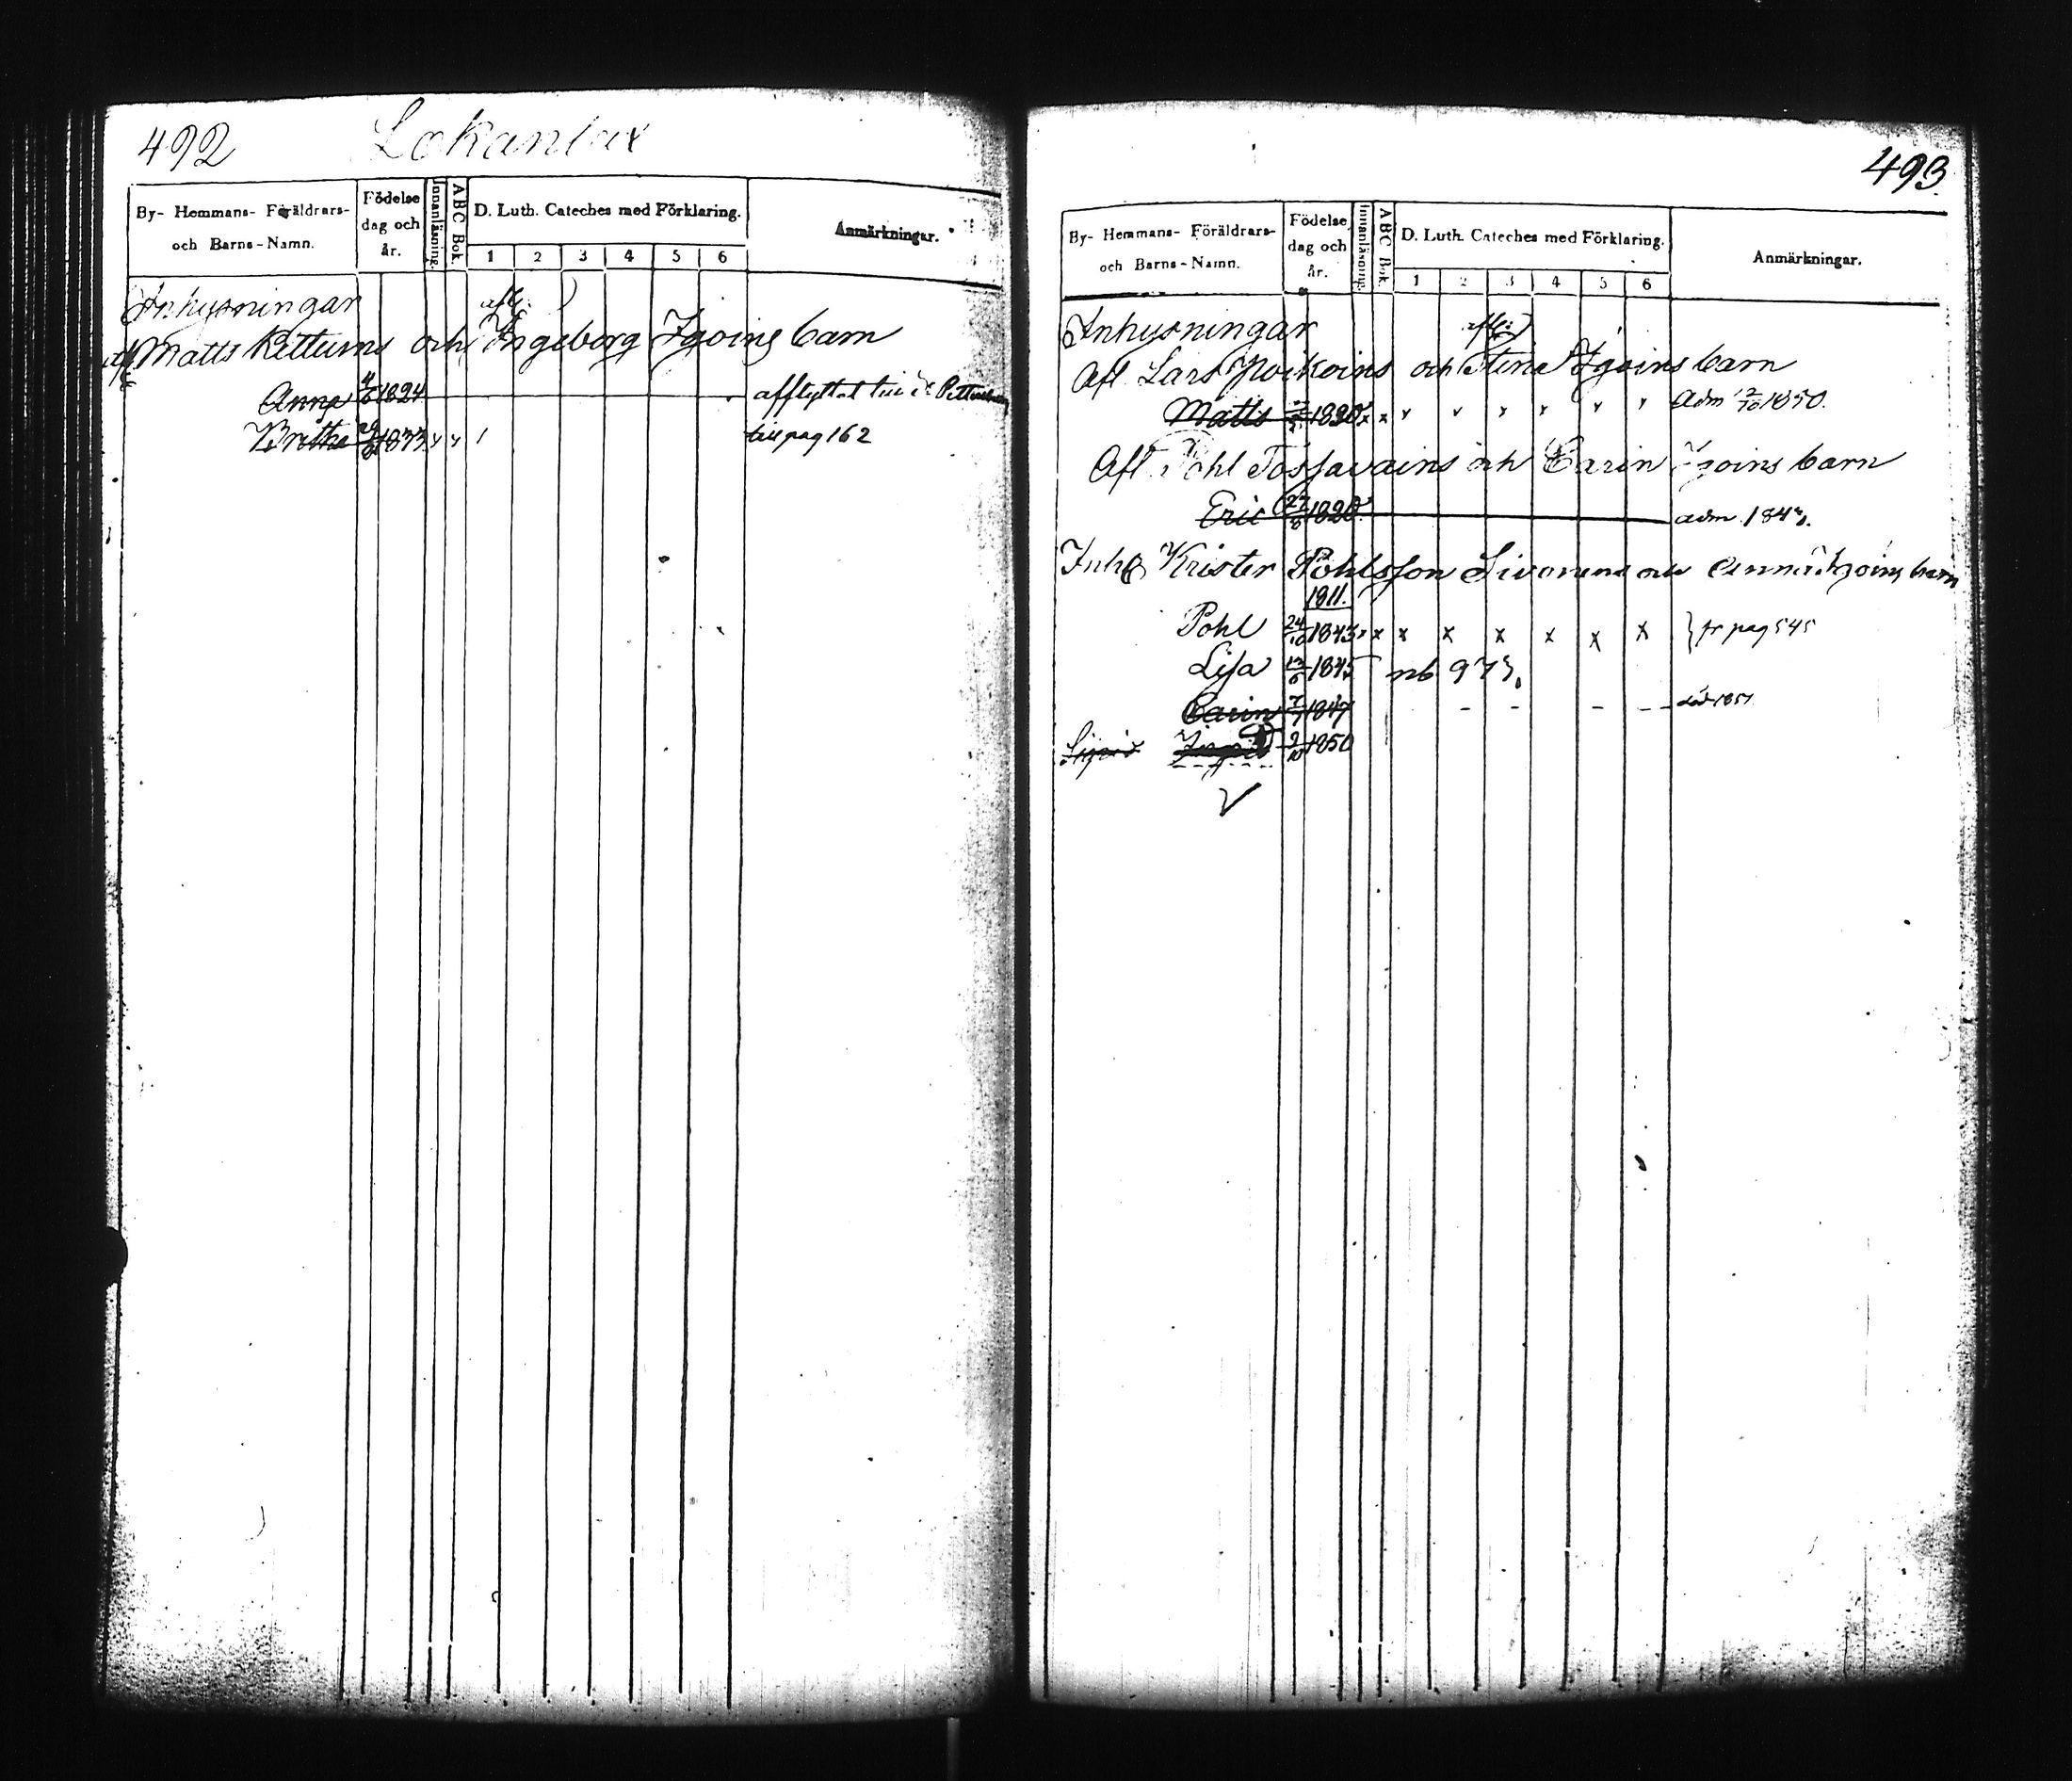 492 Lokanlax
By- Hemmans- Föräldrars-
och Barns-Namn.
Födelse
dag och
år.
Innanläsning.
ABC Bok.
D. Luth. Cateches med Förklaring.
1 2 3 4 5 6
Anmärkningar.
Inhysningar
afl:
afl Matts Kettuins och Ingeborg Igoins barn
Anna 1824 afflyttat till St Petersburg
Britha 1833 x x 1 till pag 162
493
By- Hemmans- Föräldrars-
och Barns-Namn.
Födelse
dag och
år.
Innanläsning.
ABC Bok.
D. Luth. Cateches med Förklaring.
1 2 3 4 5 6
Anmärkningar.
Inhysningar
afl:
Afl Lars Poikoins och Stina Igoins barn
Matts x x x x x x x x Adm 2/10 1850.
Afl Pohl Tossavains och Carin Igoins barn
Eric 27/8 adm. 184
Inh Krister Pohlsson Sivonens och Anna Igoins barn
1811.
Pohl 24/10 1843 x x x x x x x x } fr pag 545
Lisa 1845 nb 973
Carin 7/7 1847 död 1851
Sigrid 2/10 1850